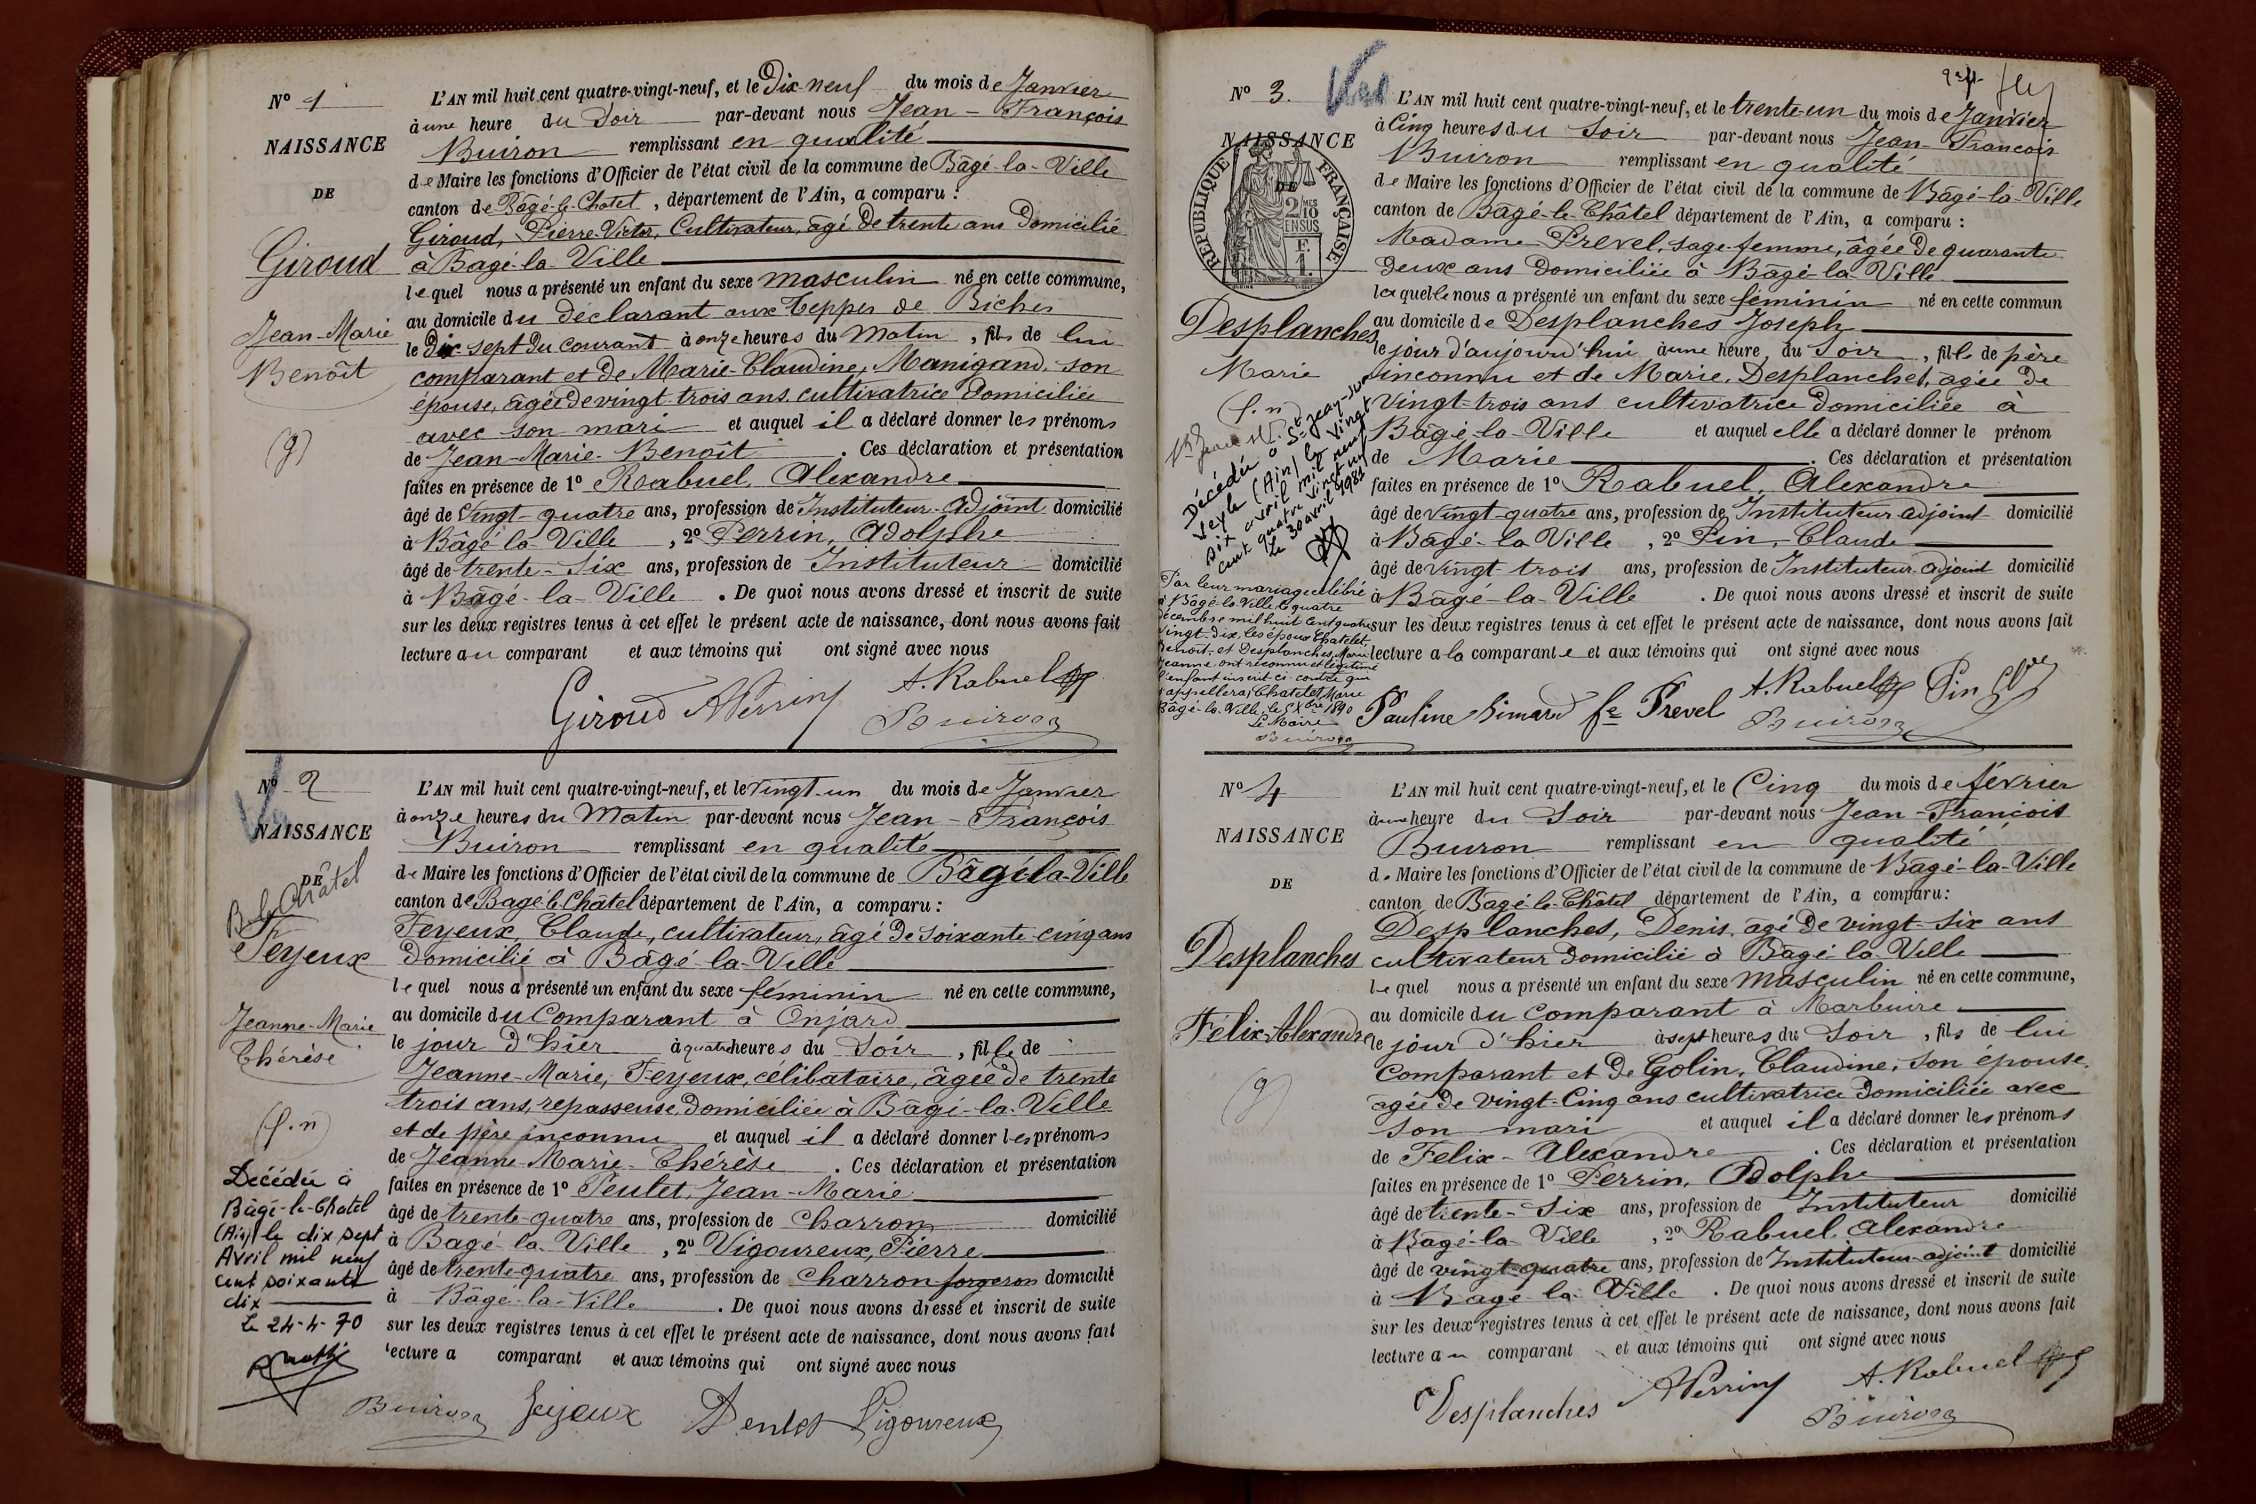 N° 1
NAISSANCE
DE
Giroud
Jean-Marie
Benoît
(g)
L'AN mil huit cent quatre-vingt-neuf, et le Dix-neuf du mois de Janvier
à une heure du Soir par-devant nous Jean-François
Buiron remplissant en qualité
de Maire les fonctions d'Officier de l'état civil de la commune de Bâgé-la-Ville
canton de Bâgé-le-Chatel, département de l'Ain, a comparu :
Giroud, Pierre-Victor, Cultivateur, âgé de trente ans Domicilié
à Bagé-la-Ville
lequel nous a présenté un enfant du sexe masculin né en cette commune,
au domicile du déclarant aux teppes de Biches
le Dix-sept du courant à onze heures du Matin, fils de lui
comparant et de Marie-Claudine, Manigand, son
épouse, âgée de vingt-trois ans, cultivatrice Domiciliée
avec son mari et auquel il a déclaré donner les prénoms
de Jean-Marie-Benoît. Ces déclaration et présentation
faites en présence de 1° Rabuel, Alexandre
âgé de Vingt-quatre ans, profession de Instituteur-Adjoint domicilié
à Bâgé-la-Ville, 2° Perrin, Adolphe
âgé de trente-six ans, profession de Instituteur domicilié
à Bâgé-la-Ville. De quoi nous avons dressé et inscrit de suite
sur les deux registres tenus à cet effet le présent acte de naissance, dont nous avons fait
lecture au comparant et aux témoins qui ont signé avec nous
Giroud A Perrin A. Rabuel
Buiron
N° 2
NAISSANCE
DE
B-le-Châtel
Feyeux
Jeanne-Marie
Thérèse
(f.n)
Décédée à
Bâgé-le-Chatel
(Ain) le dix sept
Avril mil neuf
cent soixante
dix
Le 24-4-70
L'AN mil huit cent quatre-vingt-neuf, et le vingt-un du mois de Janvier
à onze heures du Matin par-devant nous Jean-François
Buiron remplissant en qualité
de Maire les fonctions d'Officier de l'état civil de la commune de Bâgé-la-Ville
canton de Bagé-le-Châtel département de l'Ain, a comparu :
Feyeux, Claude, cultivateur, âgé de soixante-cinq ans
Domicilié à Bâgé-la-Ville
lequel nous a présenté un enfant du sexe féminin né en cette commune,
au domicile du Comparant à Onjard
le jour d'hier à quatre heures du Soir, fille de
Jeanne-Marie, Feyeux, célibataire, âgée de trente
trois ans, repasseuse, Domiciliée à Bâgé-la-Ville
et de père inconnu et auquel il a déclaré donner les prénoms
de Jeanne-Marie-Thérèse. Ces déclaration et présentation
faites en présence de 1° Peulet, Jean-Marie
âgé de trente-quatre ans, profession de Charron domicilié
à Bagé-la-Ville, 2° Vigoureux, Pierre
âgé de trente-quatre ans, profession de charron-forgeron domicilié
à Bâgé-la-Ville. De quoi nous avons dressé et inscrit de suite
sur les deux registres tenus à cet effet le présent acte de naissance, dont nous avons fait
lecture a comparant et aux témoins qui ont signé avec nous
Buiron Feyeux Peulet Vigoureux
N° 3.
Vu
NAISSANCE
DE
RÉPUBLIQUE FRANÇAISE
2/10 MES
EN SUS
F.
1.
Desplanches
Marie
(f.n)
Décédée à St Jean-sur-
Veyle (Ain) le vingt
six avril mil neuf
cent quatre vingt un
Le 30 avril 1981
Par leur mariage célébré
à Bâgé-la-Ville le quatre
décembre mil huit cent quatre
vingt-dix, les époux Chatelet
Benoît et Desplanches, Marie
Jeanne ont reconnu et légitimé
l'enfant inscrit ci-contre qui
s'appellera Chatelet Marie
Bâgé-la-Ville, le 5 Xbre 1890
Le Maire
Buiron
L'AN mil huit cent quatre-vingt-neuf, et le trente-un du mois de Janvier
à Cinq heures du Soir par-devant nous Jean-François
Buiron remplissant en qualité
de Maire les fonctions d'Officier de l'état civil de la commune de Bâgé-la-Ville
canton de Bâgé-le-Châtel département de l'Ain, a comparu :
Madame Prevel, sage-femme, âgée de quarante
deux ans Domiciliée à Bâgé-la-Ville
laquelle nous a présenté un enfant du sexe féminin né en cette commun
au domicile de Desplanches Joseph
le jour d'aujourd'hui à une heure du Soir, fille de père
inconnu et de Marie, Desplanches, agée de
vingt-trois ans cultivatrice domiciliée à
Bâgé-la-Ville et auquel elle a déclaré donner le prénom
de Marie. Ces déclaration et présentation
faites en présence de 1° Rabuel, Alexandre
âgé de vingt-quatre ans, profession de Instituteur adjoint domicilié
à Bagé-la-Ville, 2° Pin, Claude
âgé de vingt-trois ans, profession de Instituteur-adjoint domicilié
à Bâgé-la-Ville. De quoi nous avons dressé et inscrit de suite
sur les deux registres tenus à cet effet le présent acte de naissance, dont nous avons fait
lecture a la comparante et aux témoins qui ont signé avec nous
Pauline Simard fe Prevel A. Rabuel Pin Cde
Buiron
N° 4
NAISSANCE
DE
Desplanches
Félix-Alexandre
(g)
L'AN mil huit cent quatre-vingt-neuf, et le Cinq du mois de février
à une heure du Soir par-devant nous Jean-François
Buiron remplissant en qualité
de Maire les fonctions d'Officier de l'état civil de la commune de Bâgé-la-Ville
canton de Bâgé-le-Châtel département de l'Ain, a comparu :
Desplanches, Denis, agé de vingt-six ans
cultivateur Domicilié à Bâgé-la-Ville
lequel nous a présenté un enfant du sexe masculin né en cette commune,
au domicile du comparant à Marbuire
le jour d'hier à sept heures du Soir, fils de lui
comparant et de Golin, Claudine, son épouse,
agée de vingt-cinq ans cultivatrice domiciliée avec
son mari et auquel il a déclaré donner les prénoms
de Felix-Alexandre. Ces déclaration et présentation
faites en présence de 1° Perrin, Adolphe
âgé de trente-six ans, profession de Instituteur domicilié
à Bagé-la-Ville, 2° Rabuel, Alexandre
âgé de vingt-quatre ans, profession de Instituteur-adjoint domicilié
à Bagé-la-Ville. De quoi nous avons dressé et inscrit de suite
sur les deux registres tenus à cet effet le présent acte de naissance, dont nous avons fait
lecture au comparant et aux témoins qui ont signé avec nous
Desplanches A Perrin A. Rabuel
Buiron